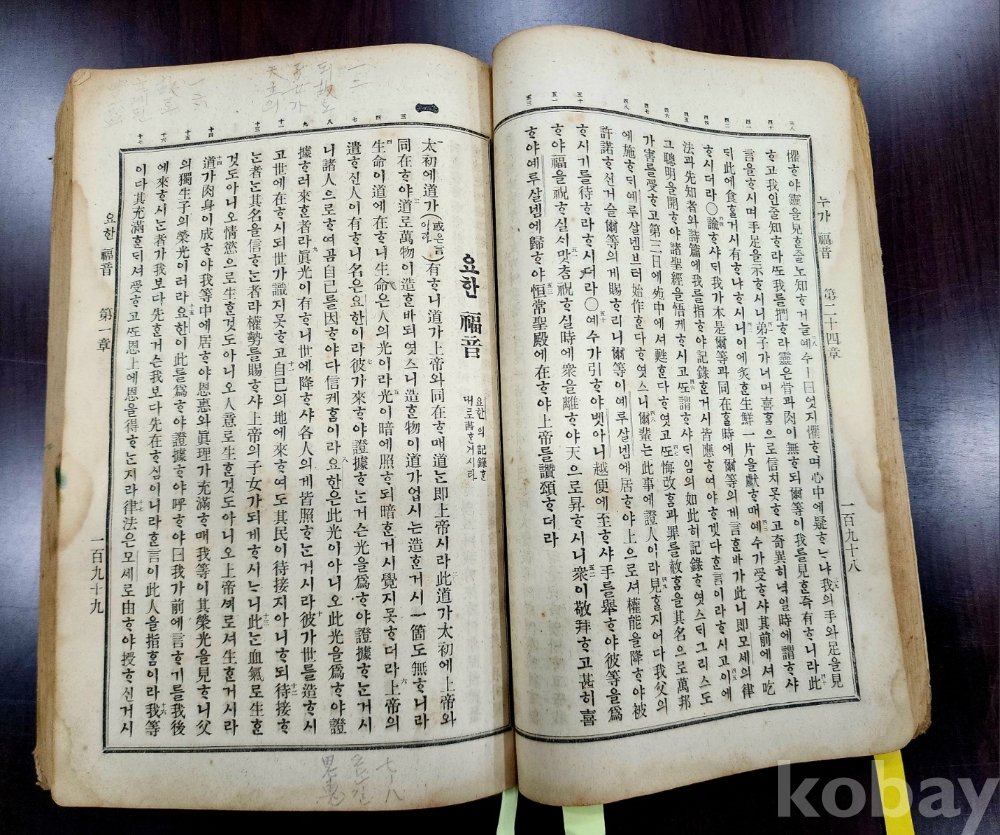 누가 福音 第二十四章 一百九十八
懼ᄒᆞ야靈을見ᄒᆞᆫ줄노知ᄒᆞ거늘예수ㅣ曰엇지懼ᄒᆞ며心中에疑ᄒᆞᄂᆞ냐我의手와足을見
ᄒᆞ고我인줄知ᄒᆞ라ᄯᅩ我를捫ᄒᆞ라靈은骨과肉이無ᄒᆞ되爾等이我를見ᄒᆞᆫ즉有ᄒᆞ니라此
言을ᄒᆞ시며手足을示ᄒᆞ시니弟子가너머喜ᄒᆞᆷ으로信치못ᄒᆞ고奇異히녁일時에謂ᄒᆞ샤
ᄃᆡ此에食ᄒᆞᆯ거시有ᄒᆞ냐ᄒᆞ시니이에炙ᄒᆞᆫ生鮮一片을獻ᄒᆞ매예수가受ᄒᆞ샤其前에셔吃
ᄒᆞ시더라○諭ᄒᆞ샤ᄃᆡ我가本是爾等과同在ᄒᆞᆯ時에爾等의게言ᄒᆞᆫ바가此니即모세의律
法과先知者와詩篇에我를指ᄒᆞ야記錄ᄒᆞᆫ거시皆應ᄒᆞ여야ᄒᆞ겟다ᄒᆞᆫ言이라ᄒᆞ시고이에
그聰明을開ᄒᆞ야諸聖經을悟케ᄒᆞ시고ᄯᅩ謂ᄒᆞ샤ᄃᆡ임의如此히記錄ᄒᆞ엿스ᄃᆡ그리스도
가害를受ᄒᆞ고第三日에死中에셔甦ᄒᆞᆫ다ᄒᆞ엿고ᄯᅩ悔改ᄒᆞᆷ과罪를赦ᄒᆞᆷ을其名으로萬邦
에施ᄒᆞ되예루살넴브터始作ᄒᆞᆫ다ᄒᆞ엿스니爾輩는此事에證人이라見ᄒᆞᆯ지어다我父의
許諾ᄒᆞ신거슬爾等의게賜ᄒᆞ리니爾等이예루살넴에居ᄒᆞ야上으로셔權能을降ᄒᆞ야被
ᄒᆞ시기를待ᄒᆞ라ᄒᆞ시더라○예수가引ᄒᆞ야벳아니越便에至ᄒᆞ샤手를擧ᄒᆞ야彼等을爲
ᄒᆞ야福을祝ᄒᆞ실ᄉᆡ맛참祝ᄒᆞ실時에衆을離ᄒᆞ야天으로昇ᄒᆞ시니衆이敬拜ᄒᆞ고甚히喜
ᄒᆞ야예루살넴에歸ᄒᆞ야恒常聖殿에在ᄒᆞ야上帝를讚頌ᄒᆞ더라
요한 福音
요한의記錄ᄒᆞᆫ
대로書ᄒᆞᆫ거시라
太初에道가(或은言이라)有ᄒᆞ니道가上帝와同在ᄒᆞ매道ᄂᆞᆫ即上帝시라此道가太初에上帝와
同在ᄒᆞ야道로萬物이造ᄒᆞᆫ바되엿스니造ᄒᆞᆫ物이道가업시는造ᄒᆞᆫ거시一箇도無ᄒᆞ니라
生命이道에在ᄒᆞ니生命은人의光이라光이暗에照ᄒᆞ되暗ᄒᆞᆫ거시覺지못ᄒᆞ더라上帝의
遣ᄒᆞ신人이有ᄒᆞ니名은요한이라彼가來ᄒᆞ야證據ᄒᆞᄂᆞᆫ거슨光을爲ᄒᆞ야證據ᄒᆞᄂᆞᆫ거시
니諸人으로ᄒᆞ여곰自己를因ᄒᆞ야다信케ᄒᆞᆷ이라요한은此光이아니오此光을爲ᄒᆞ야證
據ᄒᆞ러來ᄒᆞᆫ者라眞光이有ᄒᆞ니世에降ᄒᆞ샤各人의게皆照ᄒᆞᄂᆞᆫ거시라彼가世를造ᄒᆞ시
고世에在ᄒᆞ시되世가識지못ᄒᆞ고自己의地에來ᄒᆞ여도其民이待接지아니ᄒᆞ되待接ᄒᆞ
ᄂᆞᆫ者ᄂᆞᆫ其名을信ᄒᆞᄂᆞᆫ者라權勢를賜ᄒᆞ샤上帝의子女가되게ᄒᆞ시ᄂᆞ니此ᄂᆞᆫ血氣로生ᄒᆞᆫ
것도아니오情慾으로生ᄒᆞᆫ것도아니오人意로生ᄒᆞᆫ것도아니오上帝셔로셔生ᄒᆞᆫ거시라
道가肉身이成ᄒᆞ야我等中에居ᄒᆞ야恩惠와眞理가充滿ᄒᆞ매我等이其榮光을見ᄒᆞ니父
의獨生子의榮光이러라요한이此를爲ᄒᆞ야證據ᄒᆞ야呼ᄒᆞ야曰我가前에言ᄒᆞ기를我後
에來ᄒᆞ시ᄂᆞᆫ者가我보다先ᄒᆞᆫ거슨我보다先在ᄒᆞ심이니라ᄒᆞᆫ言이此人을指ᄒᆞᆷ이라我等
이다其充滿ᄒᆞᆫᄃᆡ셔受ᄒᆞ고ᄯᅩ恩上에恩을得ᄒᆞᄂᆞᆫ지라律法은모세로由ᄒᆞ야授ᄒᆞ신거시
요한 福音 第一章 一百九十九
kobay